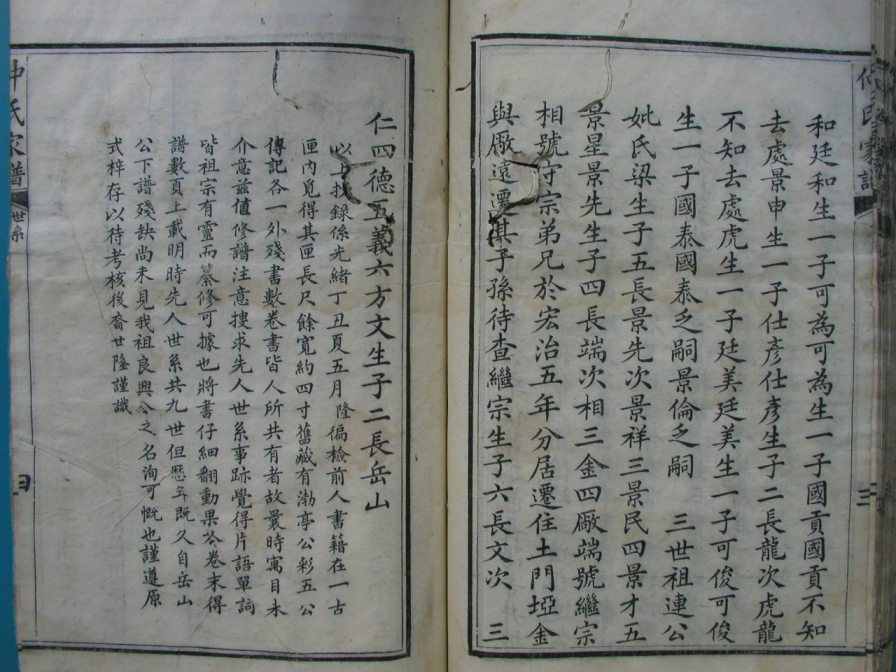 和廷和生一子可為可為生一子國貢國貢不知
去處景申生一子仕彥仕彥生子二長龍次虎龍
不知去處虎生一子廷美廷美生一子可俊可俊
生一子國泰國泰乏嗣景倫乏嗣 三世祖連公
妣氏梁生子五長景先次景祥三景民四景才五
景星景先生子四長端次相三金四厰端號繼宗
相號守宗弟兄於宏治五年分居遷住土門埡金
與厰遠遷其子孫待查繼宗生子六長文次 三
仁四德五義六方文生子二長岳山
以上抄録係光緒丁丑頁五月隆徧檢前人書籍在一古
匣内覓得其匣長尺餘寬約四寸舊藏有渤亭公彩五公
傳記各一外殘書數卷書皆人所共有者故曩時寓目未
介意兹值修譜注意搜求先人世系事跡覺得片語單詞
皆祖宗有靈而纂修可據也將書仔細翻動果於卷末得
譜數頁上載明時先人世系共九世但歷年既久自岳山
公下譜殘缺尚未見我祖良興公之名洵可慨也謹遵原
式梓存以待考核後裔世隆謹識
仲氏家譜
世系